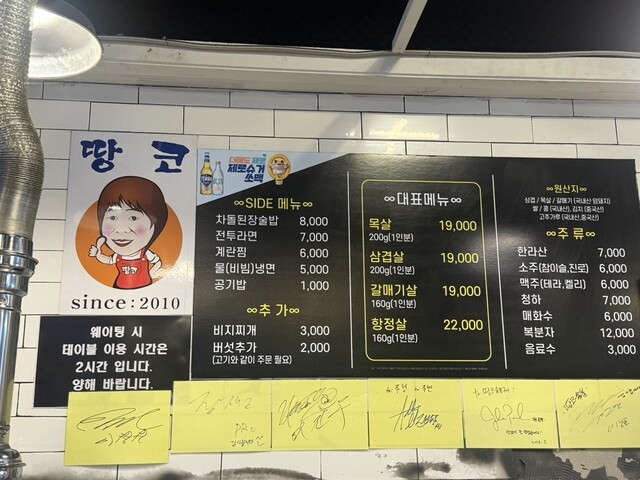 땅코
땅코
since:2010
웨이팅 시
테이블 이용 시간은
2시간 입니다.
양해 바랍니다.
제로슈거
쏘맥
∞SIDE 메뉴∞
차돌된장술밥 8,000
전투라면 7,000
계란찜 6,000
물(비빔)냉면 5,000
공기밥 1,000
∞추 가∞
비지찌개 3,000
버섯추가 2,000
(고기와 같이 주문 필요)
∞대표메뉴∞
목살 19,000
200g(1인분)
삼겹살 19,000
200g(1인분)
갈매기살 19,000
160g(1인분)
항정살 22,000
160g(1인분)
∞원산지∞
삼겹 / 목살 / 갈매기 (국내산 암돼지)
쌀 / 콩 (국내산), 김치 (중국산)
고추가루 (국내산,중국산)
∞주 류∞
한라산 7,000
소주(참이슬,진로) 6,000
맥주(테라,켈리) 6,000
청하 7,000
매화수 6,000
복분자 12,000
음료수 3,000
PRO